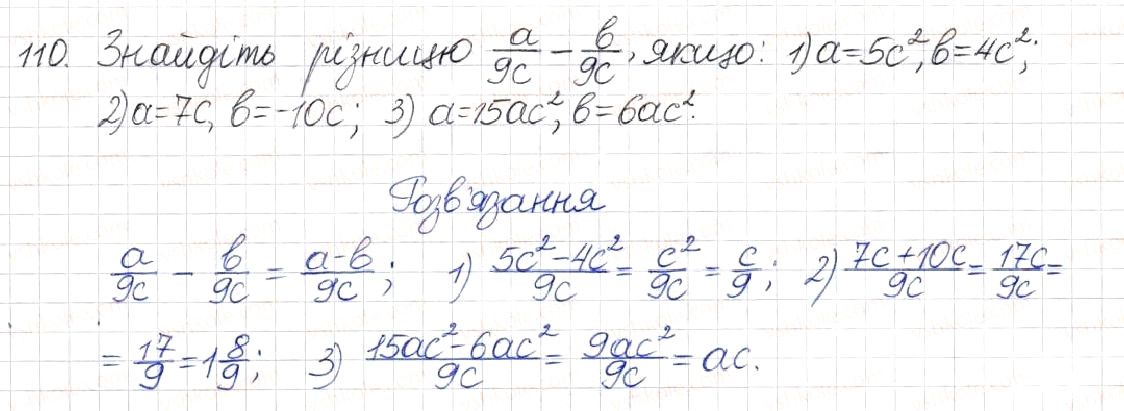 110. Знайдіть різницю a/9c − b/9c, якщо: 1) a=5c², b=4c²;
2) a=7c, b=-10c; 3) a=15ac², b=6ac².
Розв'язання
a/9c − b/9c = (a-b)/9c; 1) (5c²-4c²)/9c = c²/9c = c/9; 2) (7c+10c)/9c = 17c/9c =
= 17/9 = 1 8/9; 3) (15ac²-6ac²)/9c = 9ac²/9c = ac.